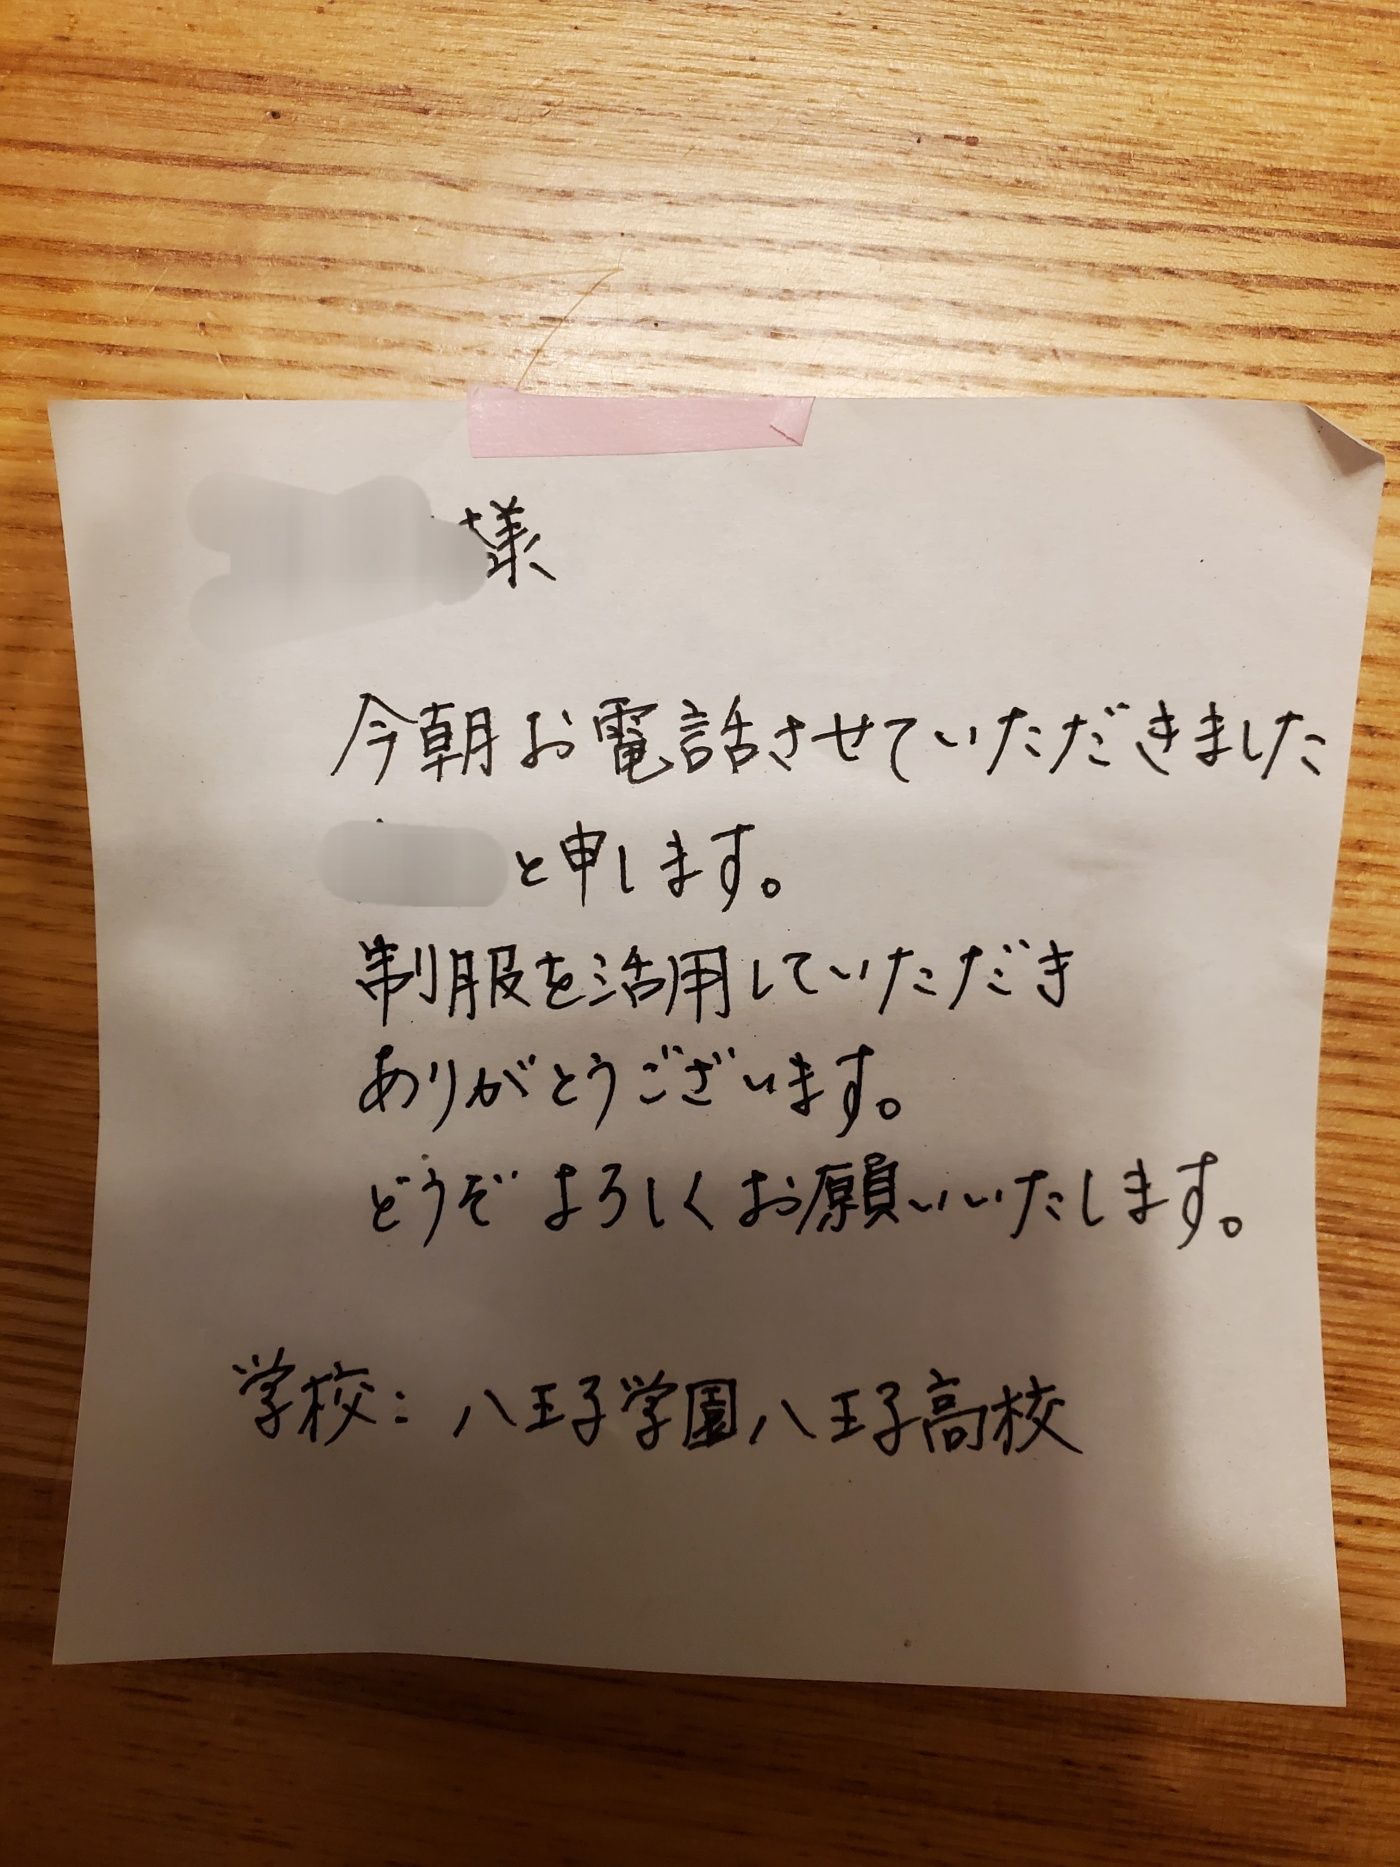 様
今朝お電話させていただきました
と申します。
制服を活用していただき
ありがとうございます。
どうぞよろしくお願いいたします。
学校：八王子学園八王子高校